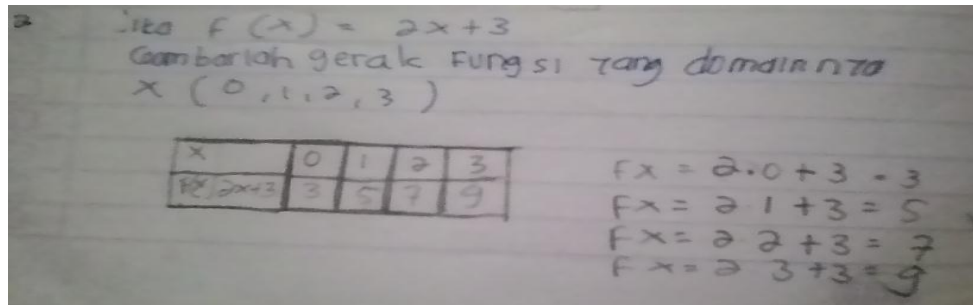 2 Jika f(x) = 2x+3
Gambarlah gerak Fungsi yang domainnya
x (0,1,2,3)
x 0 1 2 3
Fx 2x+3 3 5 7 9
Fx = 2.0 + 3 = 3
Fx = 2 1 + 3 = 5
Fx = 2 2 + 3 = 7
Fx = 2 3 + 3 = 9